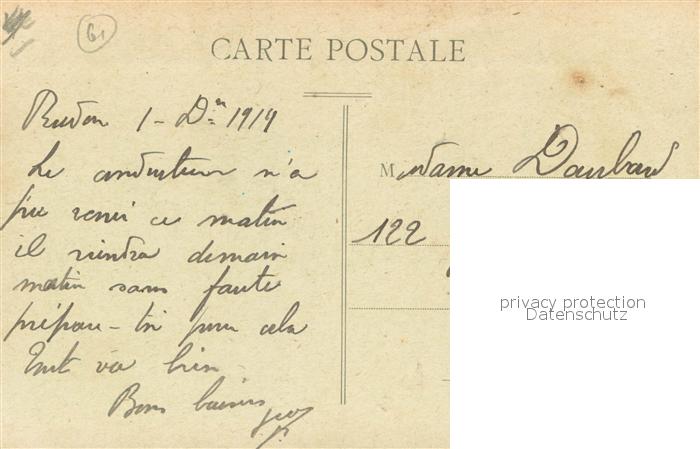 61
CARTE POSTALE
1 - Dre 1914
Le conducteur n'a
pu venir ce matin
il viendra demain
matin sans faute
prépare-toi pour cela
Tout va bien
Bons baisers
Madame Daubard
122
privacy protection
Datenschutz